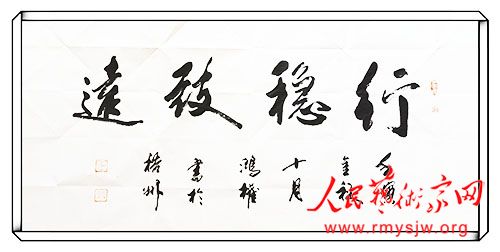 行穩致遠
十月
鴻權
書於
梧州
人民藝術家网
www.rmysjw.org